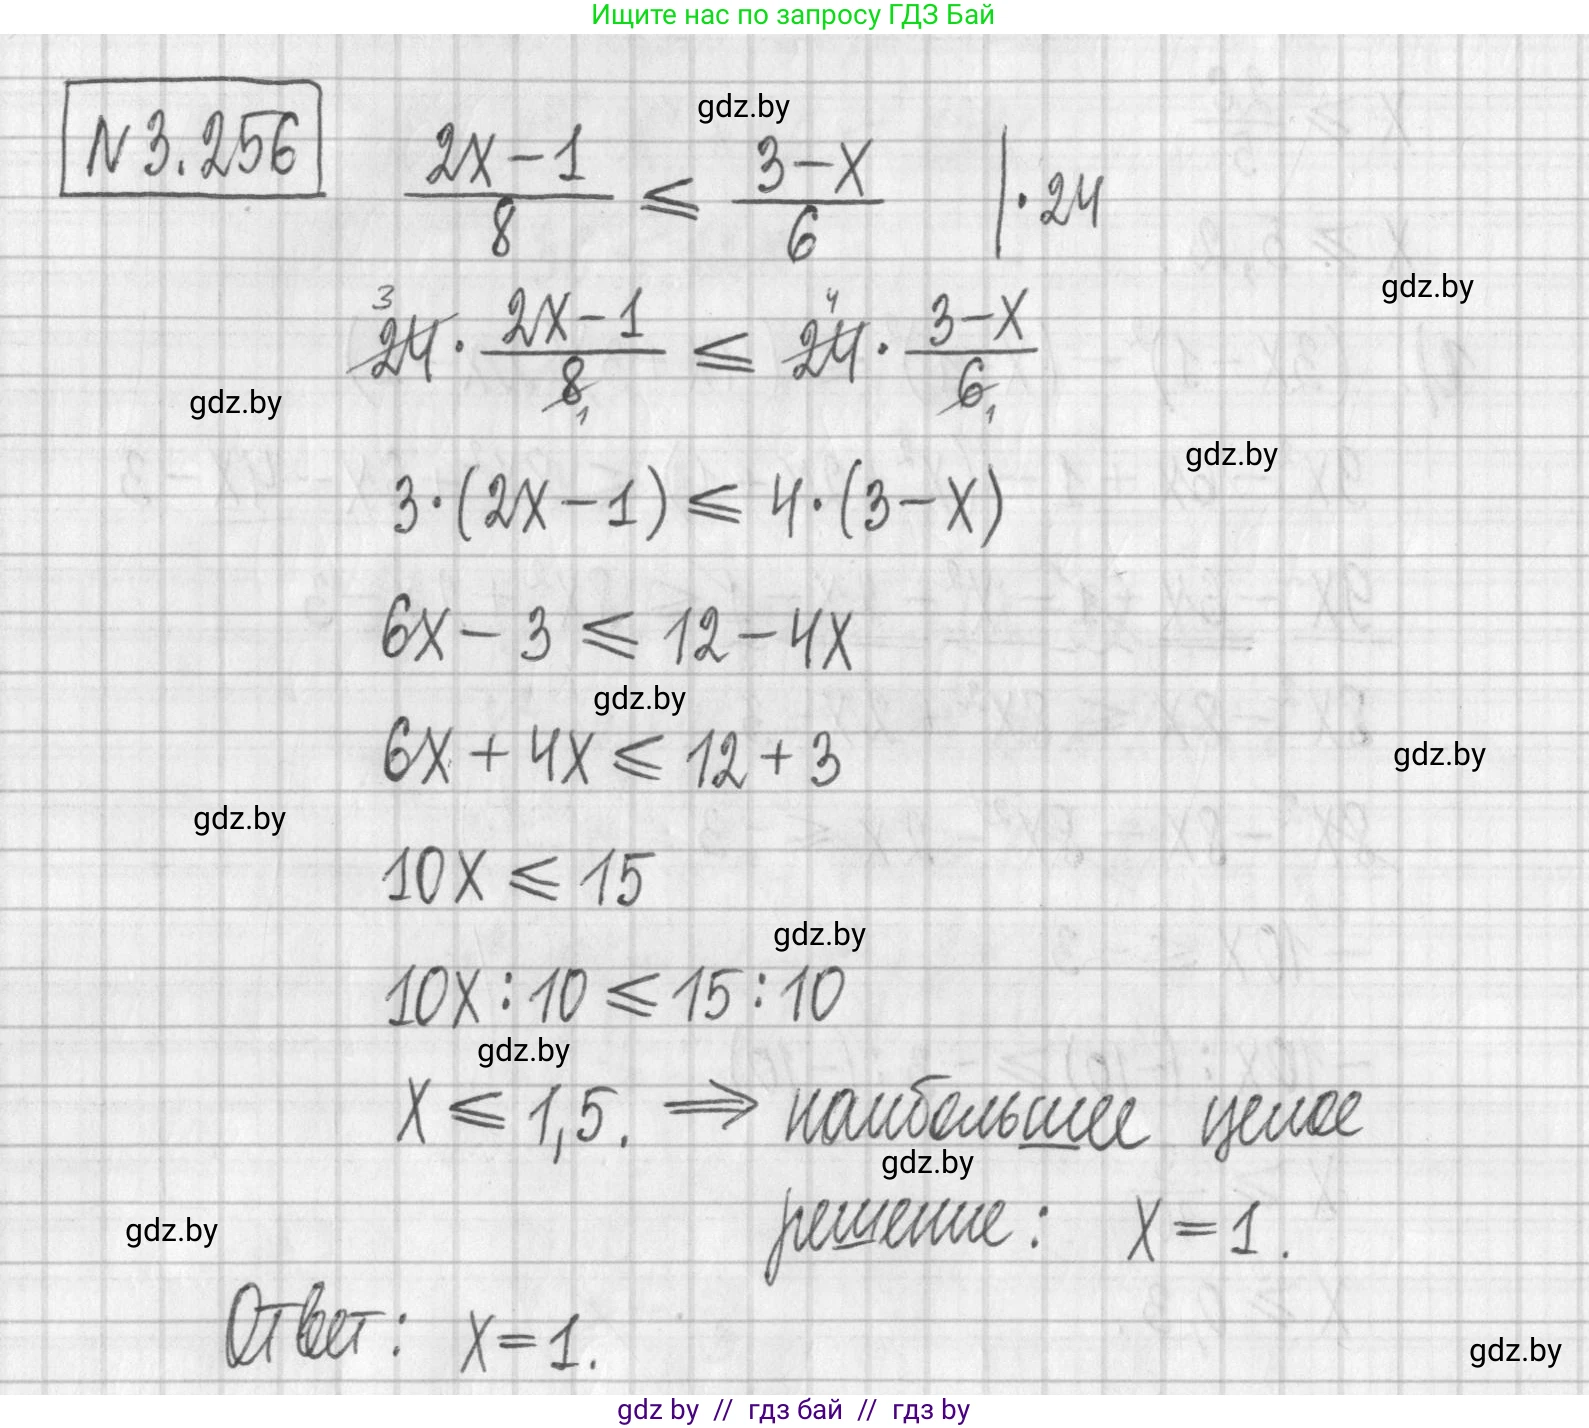 Ищите нас по запросу ГДЗ Бай
N 3.256
(2x-1)/8 ⩽ (3-x)/6 | · 24
gdz.by
gdz.by
24 3 · (2x-1)/8 1 ⩽ 24 4 · (3-x)/6 1
gdz.by
gdz.by
3·(2x-1) ⩽ 4·(3-x)
6x - 3 ⩽ 12 - 4x
gdz.by
6x + 4x ⩽ 12 + 3
gdz.by
gdz.by
10x ⩽ 15
gdz.by
10x : 10 ⩽ 15 : 10
gdz.by
x ⩽ 1,5. ⇒ наибольшее целое
gdz.by
решение: x = 1.
gdz.by
Ответ: x = 1.
gdz.by
gdz by // гдз бай // гдз by